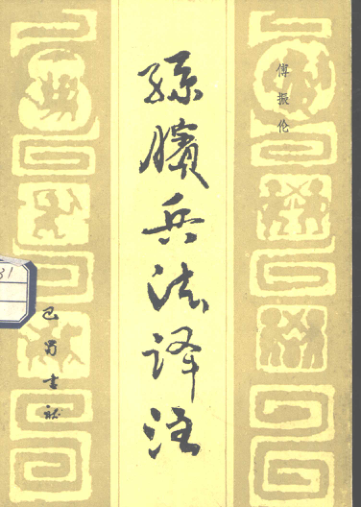 傅振伦
孙膑兵法译注
巴蜀书社
81